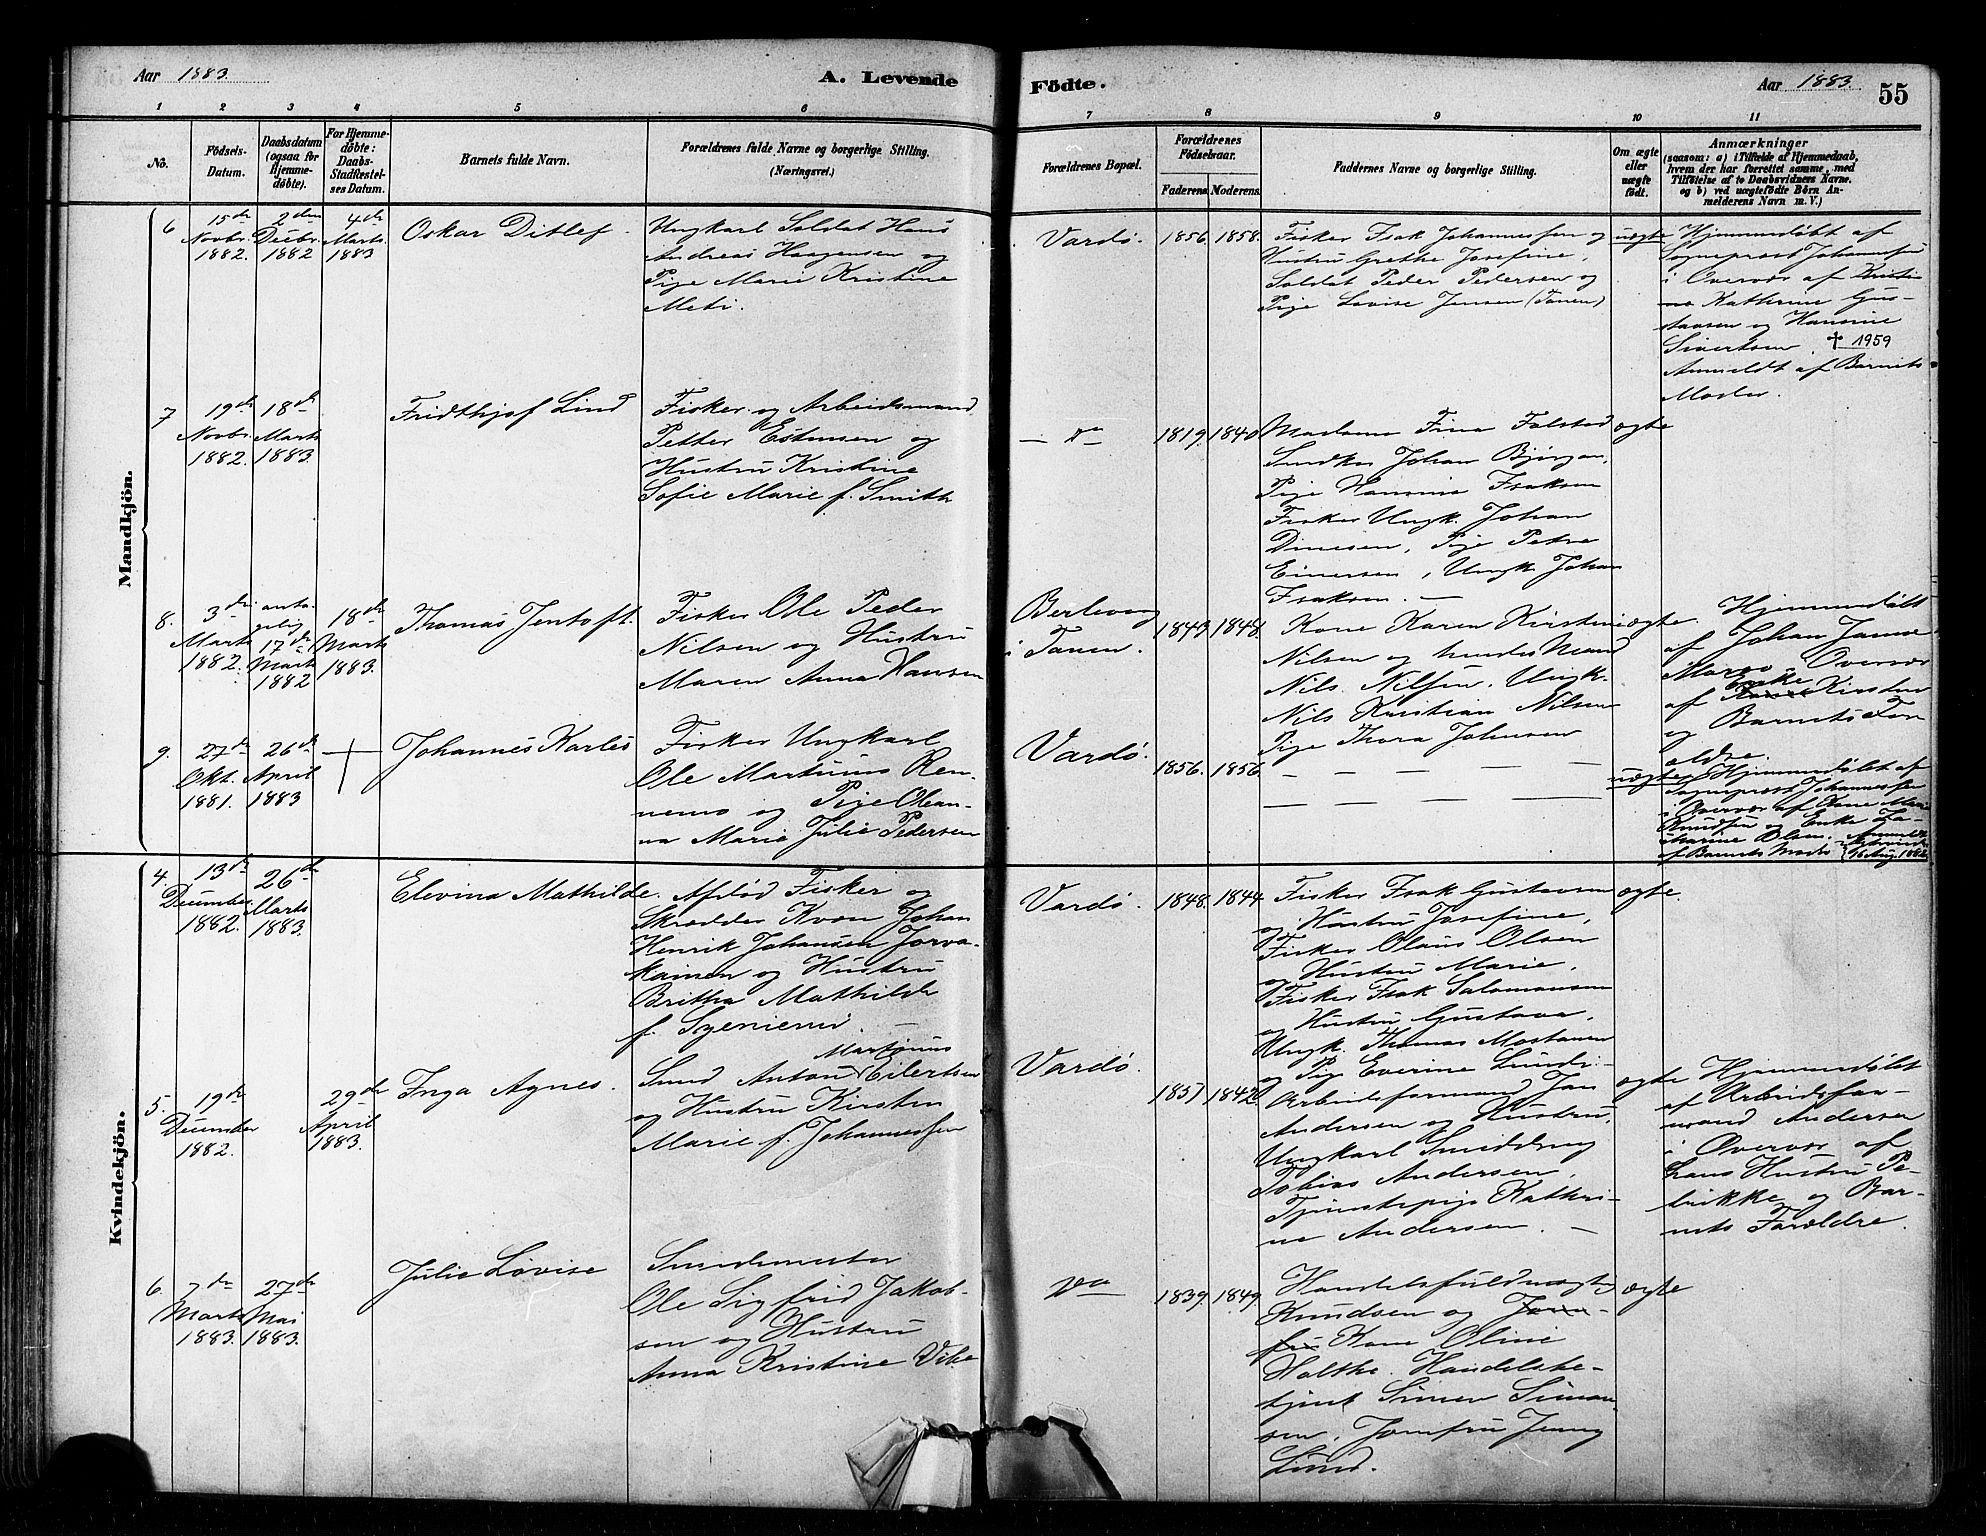 Aar 1883.
A. Levende
Födte.
Aar 1883.
55
1 2 3 4 5 6 7 8 9 10 11
No.
Födsels-
Datum.
Daabsdatum
(ogsaa for
Hjemme-
döbte).
For Hjemme-
döbte:
Daabs-
Stadfæstel-
ses Datum.
Barnets fulde Navn.
Forældrenes fulde Navne og borgerlige Stilling.
(Næringsvei.)
Forældrenes Bopæl.
Forældrenes
Födselsaar.
Faderens. Moderens.
Faddernes Navne og borgerlige Stilling.
Om ægte
eller
uægte
födt.
Anmærkninger
(saasom: a) i Tilfælde af Hjemmedaab,
hvem der har forrettet samme, med
Tilföielse af to Daabsvidners Navne.
og b) ved uægtefödte Börn An-
melderens Navn m. V.)
Mandkjön.
6
15de
Novbr.
1882.
2den
Decbr.
1882
4de
Marts
1883
Oskar Ditlef.
Ungkarl Soldat Hans
Andreas Haagensen og
Pige Marie Kristine
Meti.
Vardö.
1856. 1858.
Fisker Isak Johannessen og
Hustru Grethe Josefine,
Soldat Peder Pedersen og
Pige Lovise Jensen (Tanen)
uægte
Hjemmedöbt af
Sogneprest Johannessen
i Overvær af Kristi-
ne Kathrine Gus-
tavsen og Hansine
Sivertsen. † 1959
Anmeldt af Barnets
Moder.
7
19de
Novbr.
1882.
18de
Marts
1883.
Fridthjof Lind
Fisker og Arbeidsmand
Petter Estensen og
Hustru Kristine
Sofie Marie f. Smith
— do
1819. 1840
Madame Fina Falstad
Snedker Johan Björgan,
Pige Hansine Isaksen
Fisker Ungk. Johan
Dinesen, Pige Petra
Einersen, Ungk. Johan
Isaksen. —
ægte
8.
3de
Marts
1882.
anta-
gelig
17de
Marts
1882
18de
Marts
1883.
Thomas Jentoft.
Fisker Ole Peder
Nilsen og Hustru
Maren Anna Hansen
Berlevaag
i Tanen.
1843 1848.
Kone Karen Kirstine
Nilsen og hendes Mand
Nils Nilsen, Ungk.
Nils Kristian Nilsen
Pige Thora Johnsen
ægte.
Hjemmedöbt
af Johan
i Overvær
af Enke Kirsten
og Barnets For-
ældre.
9.
27de
Okt.
1881.
26de
April
1883
Johannes Karles
Fisker Ungkarl
Ole Martinus Ren-
nemo og Pige Olean-
na Marie Julie Pedersen
Vardö.
1856. 1856
— — — — —
— — — — —
uægte
Hjemmedöbt af
Sogneprest Johannessen
i Overvær af Kone Marie
Knudsen og Enke Ka-
tharine Olsen. Anmeldt
af Barnets Moder
16 Aug. 1882
Kvindekjön.
4.
13de
December
1882.
26de
Marts
1883.
Elevina Mathilde.
Afdöd Fisker og
Skrædder Kvæn Johan
Henrik Johansen Jorva-
kainen og Hustru
Britha Mathilde
f. Sgenieni. —
Vardö.
1848. 1844
Fisker Isak Gustavsen
og Hustru Josefine,
Fisker Olaus Olsen
og Hustru Marie,
Fisker Isak Salomonsen
og Hustru Gustava,
Ungk. Thomas Mostanen
og Pige Everine Lundi-
ægte.
5.
19de
December
1882.
29de
April
1883.
Inga Agnes.
Martinius
Smed Anton Eilertsen
og Hustru Kirsten
Marie f. Johannessen
Vardö.
1851 1842.
Arbeidsformand Jan
Andersen og Hustru,
Ungkarl Smeddreng
Tobias Andersen,
Tjenestepige Kathri-
ne Andersen. —
ægte
Hjemmedöbt
af Arbeidsfor-
mand Andersen
i Overvær af
hans Hustru Pe-
rikke og Bar-
nets Forældre.
6.
7de
Marts
1883.
27de
Mai
1883.
Julie Lovise
Smedemester
Ole Sigfrid Jakob-
sen og Hustru
Anna Kristine Vibe
do
1839. 1849.
Handelsfuldmægtig
Knudsen og Jom-
fru Kone Oline
Holthe. Handelsbe-
tjent Simen Simon-
sen, Jomfru Jenny
Lund.
ægte